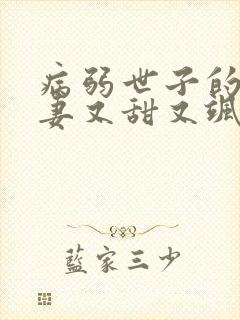 病弱世子的
妻又甜又颯
藍家三少